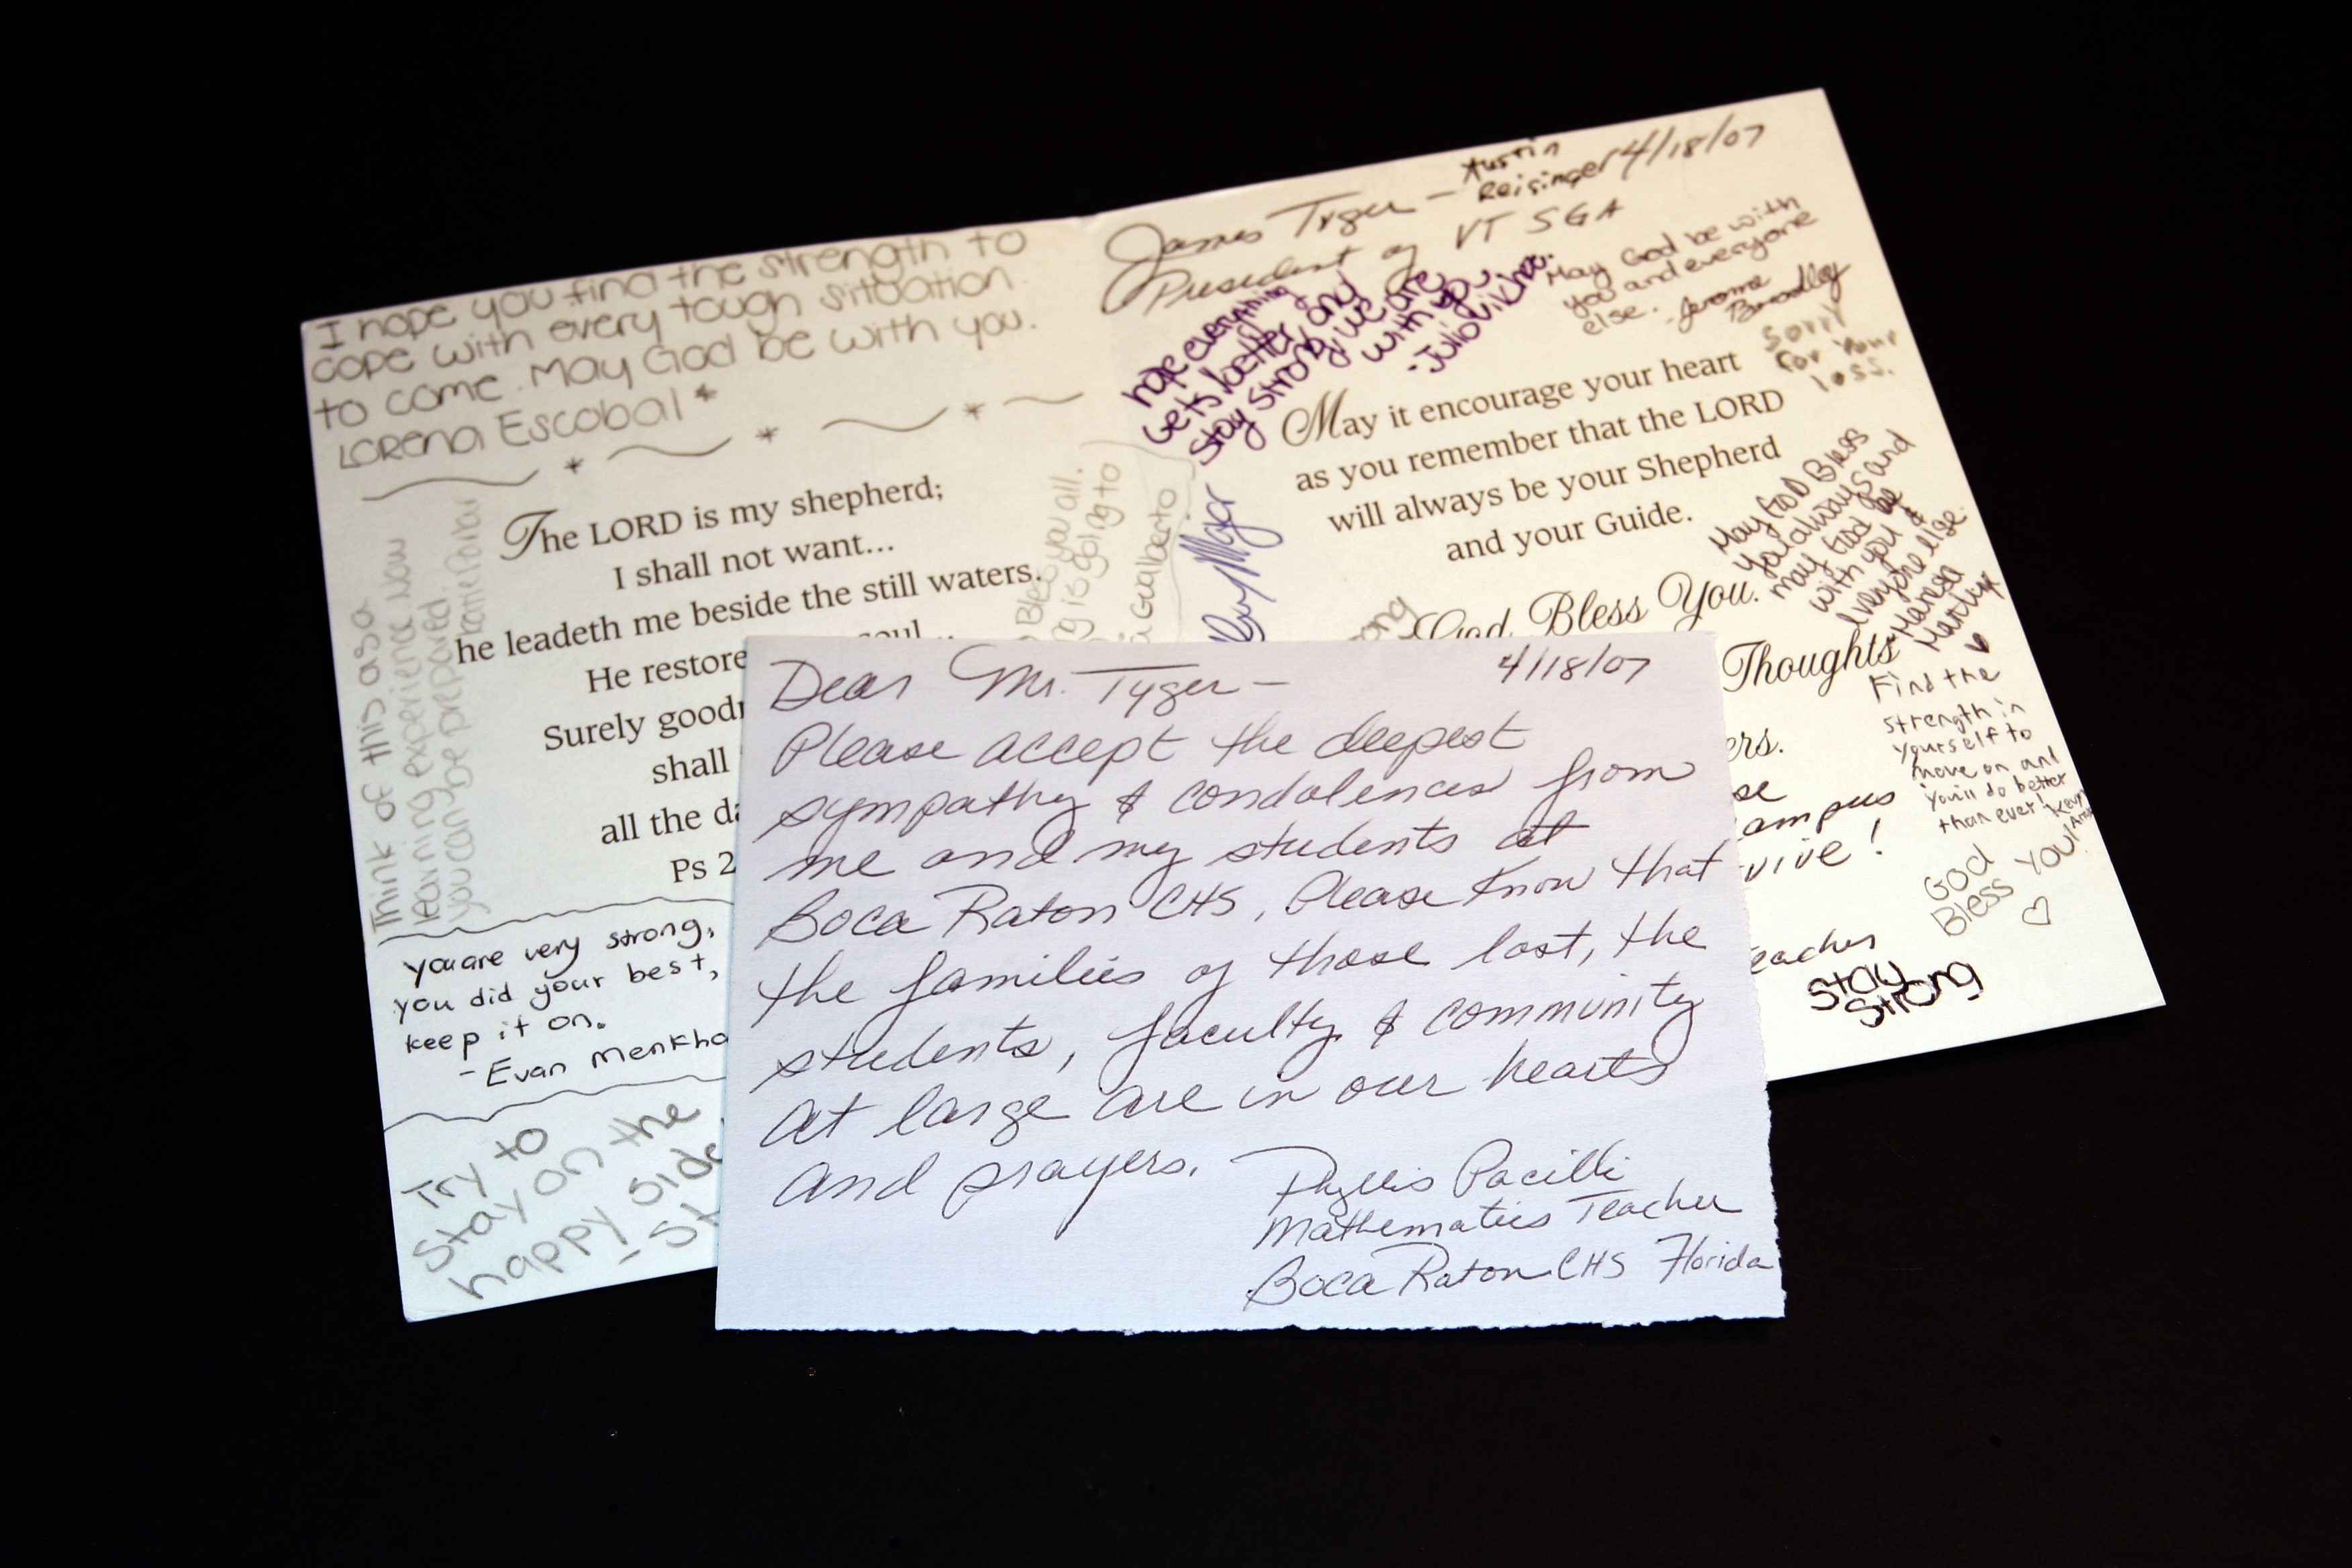 I hope you find the strength to
cope with every tough situation
to come. May God be with you.
Lorena Escobal *
The LORD is my shepherd;
I shall not want...
he leadeth me beside the still waters.
He restore soul...
Surely good
shall
all the da
Ps 2
Think of this as a
learning experience. Now
you can be prepared.
Katie Parker
You are very strong,
you did your best,
keep it on.
- Evan Menkha
Try to
Stay on the
happy side
- St
Bless you all.
is going to
Gualberto
James Tyger - Austin Reisinger 4/18/07
President of VT SGA
hope everything
Gets better and
Stay strong, we are
with you.
May God be with
you and everyone
else.
- Jerome
Bradley
Sorry
for your
loss.
May it encourage your heart
as you remember that the LORD
will always be your Shepherd
and your Guide.
God Bless You.
Thoughts
ers.
se
ampus
vive!
eacher
May God Bless
You always and
may God be
with you &
everyone else.
Find the
strength in
yourself to
move on and
you'll do better
than ever!
God
Bless You!
Stay
Strong
Dear Mr. Tyger - 4/18/07
Please accept the deepest
sympathy & condolences from
me and my students at
Boca Raton CHS. Please know that
the families of those lost, the
students, faculty & community
at large are in our hearts
and prayers.
Phyllis Pacilli
Mathematics Teacher
Boca Raton CHS Florida